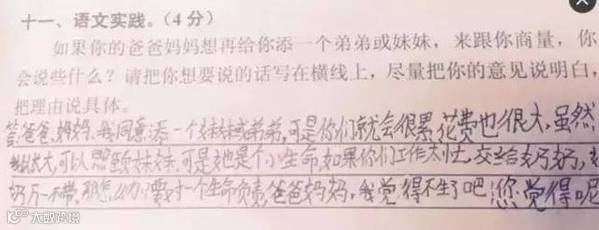 十一、语文实践。(4分)
如果你的爸爸妈妈想再给你添一个弟弟或妹妹，来跟你商量，你
会说些什么？请把你想要说的话写在横线上，尽量把你的意见说明白，
把理由说具体。
答:爸爸、妈妈，我同意添一个妹妹或弟弟，可是你们就会很累，花费也很大，虽然
我长大了，可以照顾妹妹，可是她是个小生命，如果你们工作太忙，交给奶奶，
奶万一不带，那怎么办，要对一个生命负责，爸爸妈妈，我觉得不生了吧！您觉得呢
大欧资讯